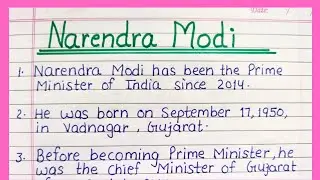 Narendra Modi
1. Narendra Modi has been the Prime
Minister of India since 2014.
2. He was born on September 17, 1950,
in Vadnagar, Gujarat.
3. Before becoming Prime Minister, he
was the Chief Minister of Gujarat